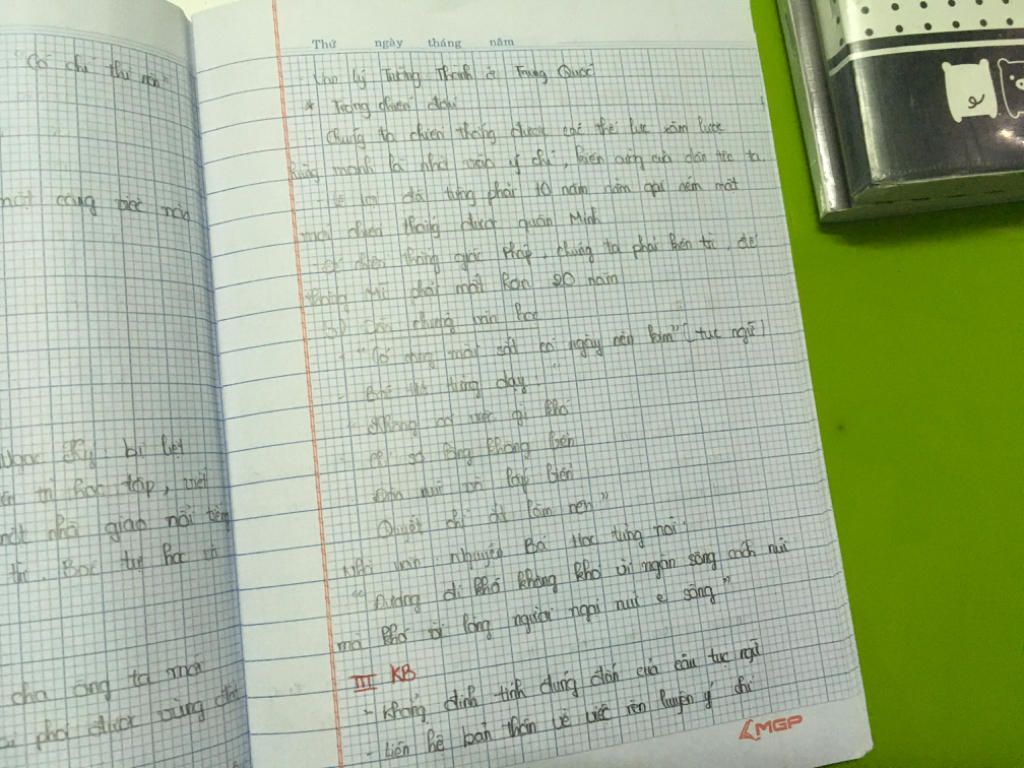 "Có chí thì nên"
một công việc nào
Ngọc Ký bị liệt
trì học tập, viết
một nhà giáo nổi tiếng
Bác tự học
cha ông ta mới
phải được vững
Thứ ngày tháng năm
Lý Tường Thành ở Trung Quốc
* Trong chiến đấu
- Chúng ta chiến thắng được các thế lực xâm lược
hùng mạnh là nhờ vào ý chí, kiên cường của dân tộc ta.
- Lê Lợi đã từng phải 10 năm nằm gai nếm mật
mới chiến thắng được quân Minh
- Để chiến thắng giặc Pháp, chúng ta phải kiên trì, để
thắng Mĩ phải mất hơn 20 năm
b) Dẫn chứng văn học
- "Có công mài sắt có ngày nên kim" (tục ngữ)
- Bác Hồ từng dạy: "
Không có việc gì khó
Chỉ sợ lòng không bền
Đào núi và lấp biển
Quyết chí ắt làm nên"
Nhà văn Nguyễn Bá Học từng nói:
"Đường đi khó không khó vì ngăn sông cách núi
mà khó vì lòng người ngại núi e sông"
III KB
- Khẳng định tính đúng đắn của câu tục ngữ
- Liên hệ bản thân về việc rèn luyện ý chí
MGP